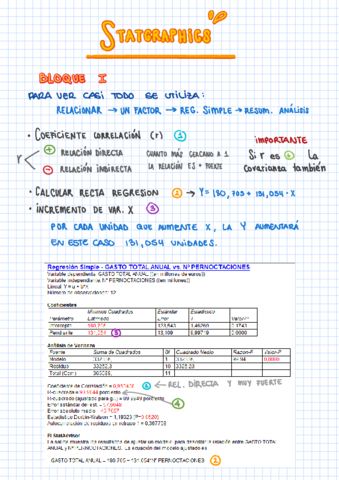 STATGRAPHICS
BLOQUE I
PARA VER CASI TODO SE UTILIZA:
RELACIONAR → UN FACTOR → REG. SIMPLE → RESUM. ANÁLISIS
• COEFICIENTE CORRELACIÓN (r) 1
IMPORTANTE
r
+ RELACIÓN DIRECTA
CUANTO MÁS CERCANO A 1
LA RELACIÓN ES + FUERTE
- RELACIÓN INDIRECTA
Si r es + La
Covarianza también
• CALCULAR RECTA REGRESION 2 → Y = 180,705 + 131,054 · X
• INCREMENTO DE VAR. X 3
POR CADA UNIDAD QUE AUMENTE X, LA Y AUMENTARÁ
EN ESTE CASO 131,054 UNIDADES.
Regresión Simple - GASTO TOTAL ANUAL vs. Nº PERNOCTACIONES
Variable dependiente: GASTO TOTAL ANUAL (en millones de euros)
Variable independiente: Nº PERNOCTACIONES (en millones)
Lineal: Y = a + b*X
Número de observaciones: 12
Coeficientes
Mínimos Cuadrados Estándar Estadístico
Parámetro Estimado Error T Valor-P
Intercepto
Pendiente 131,054 3
Análisis de Varianza
Fuente Suma de Cuadrados Gl Cuadrado Medio Razón-F Valor-P
Modelo
Residuo
Total (Corr.) 11
Coeficiente de Correlación = 1 → REL. DIRECTA Y MUY FUERTE
R-cuadrada = 4
R-cuadrado (ajustado para g.l.) =
Error estándar del est. =
Error absoluto medio =
Estadístico Durbin-Watson =
Autocorrelación de residuos en retraso 1 =
El StatAdvisor
La salida muestra los resultados de ajustar un modelo para describir la relación entre GASTO TOTAL
ANUAL y Nº PERNOCTACIONES. La ecuación del modelo ajustado es
GASTO TOTAL ANUAL = 180,705 + 131,054*Nº PERNOCTACIONES 2